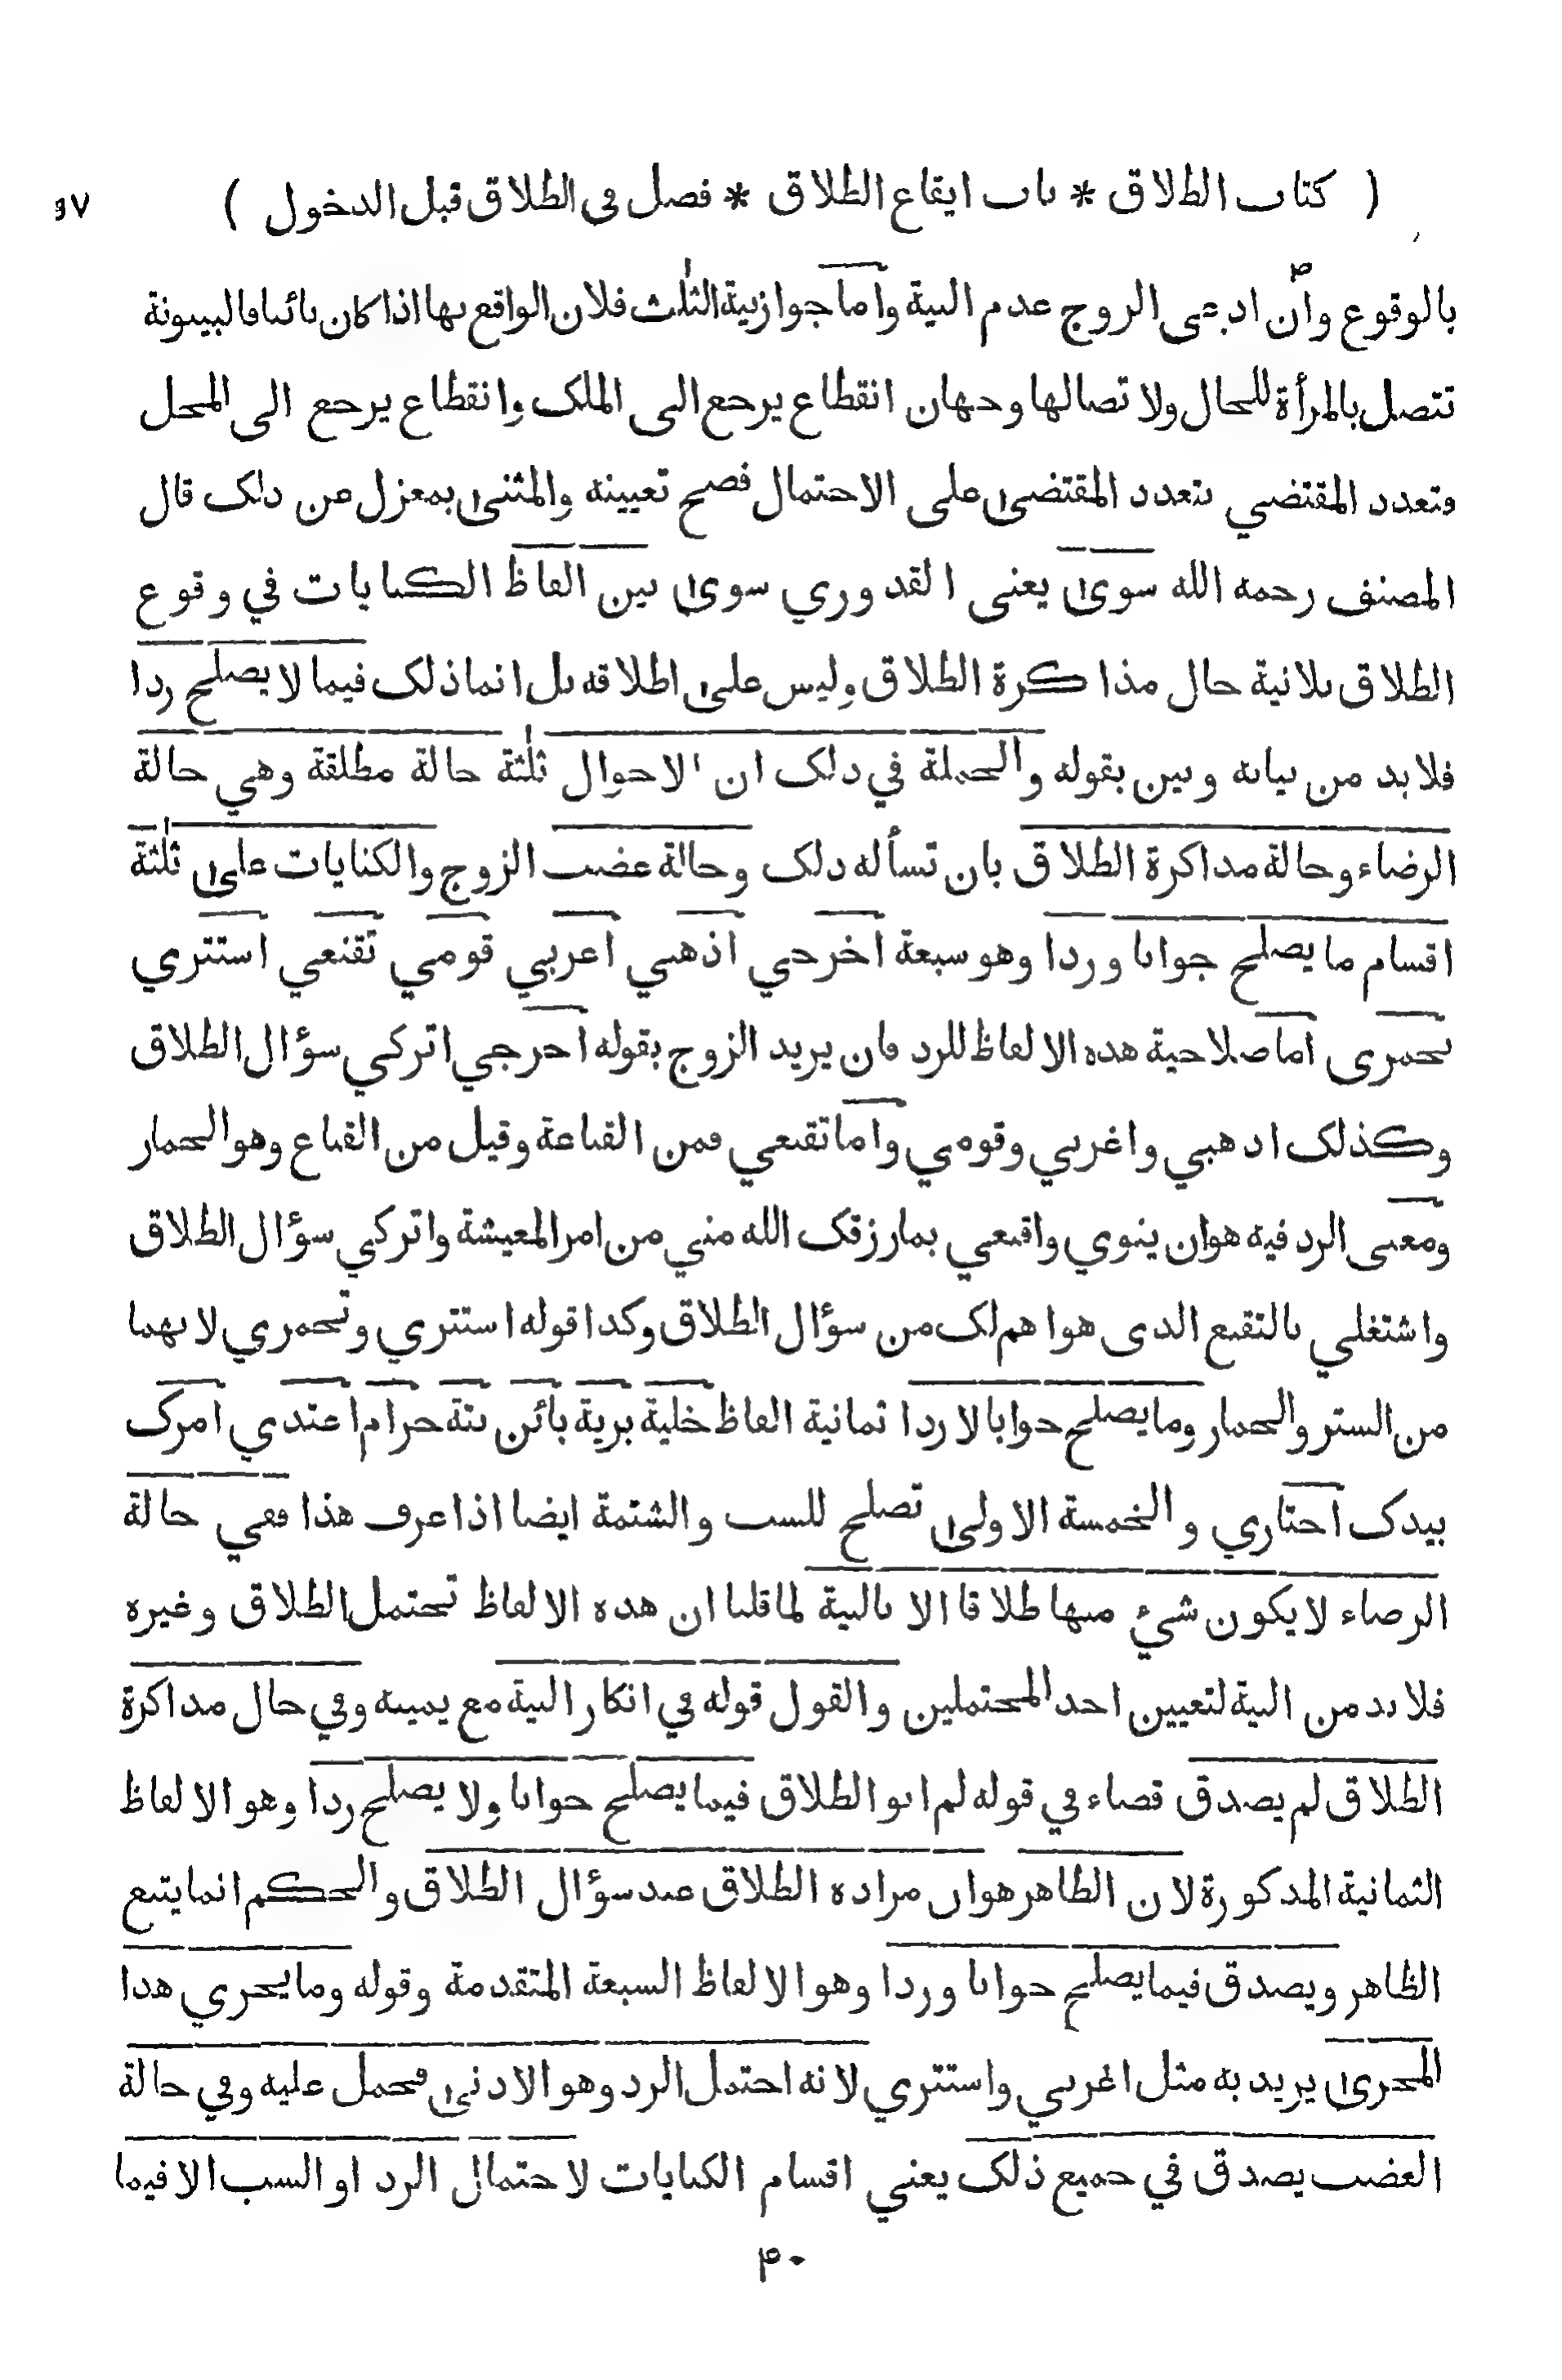 ( كتاب الطلاق * باب ايقاع الطلاق * فصل في الطلاق قبل الدخول ) ٩٧
بالوقوع وان ادعى الزوج عدم النية واما جواز نية الثلث فلان الواقع بها اذا كان بائنا فالبينونة
تتصل بالمرأة للحال ولا تصالها وجهان انقطاع يرجع الى الملك وانقطاع يرجع الى المحل
وتعدد المقتضي بتعدد المقتضى على الاحتمال فصح تعيينه والمثنى بمعزل عن ذلك قال
المصنف رحمه الله سوى يعنى القدوري سوى بين الفاظ الكنايات في وقوع
الطلاق بلانية حال مذاكرة الطلاق وليس على اطلاقه بل انما ذلك فيما لا يصلح ردا
فلابد من بيانه وبين بقوله والجملة في ذلك ان الاحوال ثلثة حالة مطلقة وهي حالة
الرضاء وحالة مذاكرة الطلاق بان تسأله ذلك وحالة غضب الزوج والكنايات على ثلثة
اقسام ما يصلح جوابا وردا وهو سبعة اخرجي اذهبي اعزبي قومي تقنعي استتري
تخمرى اما صلاحية هذه الالفاظ للرد فان يريد الزوج بقوله اخرجي اتركي سؤال الطلاق
وكذلك اذهبي واغربي وقومي واما تقنعي فمن القناعة وقيل من القناع وهو الخمار
ومعنى الرد فيه هوان ينوي واقنعي بما رزقك الله مني من امر المعيشة واتركي سؤال الطلاق
واشتغلي بالتقنع الذى هو اهم لك من سؤال الطلاق وكذا قوله استتري وتخمري لانهما
من الستر والخمار وما يصلح جوابا لا ردا ثمانية الفاظ خلية برية بائن بتة حرام اعتدي امرك
بيدك اختاري والخمسة الاولى تصلح للسب والشتمة ايضا اذا عرف هذا ففي حالة
الرضاء لا يكون شيء منها طلاقا الا بالنية لما قلنا ان هذه الالفاظ تحتمل الطلاق وغيره
فلا بد من النية لتعيين احد المحتملين والقول قوله في انكار النية مع يمينه وفي حال مذاكرة
الطلاق لم يصدق قضاء في قوله لم انو الطلاق فيما يصلح جوابا ولا يصلح ردا وهو الالفاظ
الثمانية المذكورة لان الظاهر هوان مراده الطلاق عند سؤال الطلاق والحكم انما يتبع
الظاهر ويصدق فيما يصلح جوابا وردا وهو الالفاظ السبعة المتقدمة وقوله وما يجري هذا
المجرى يريد به مثل اغربي واستتري لانه احتمل الرد وهو الادنى فحمل عليه وفي حالة
الغضب يصدق في جميع ذلك يعني اقسام الكنايات لاحتمال الرد او السب الا فيما
۴۰